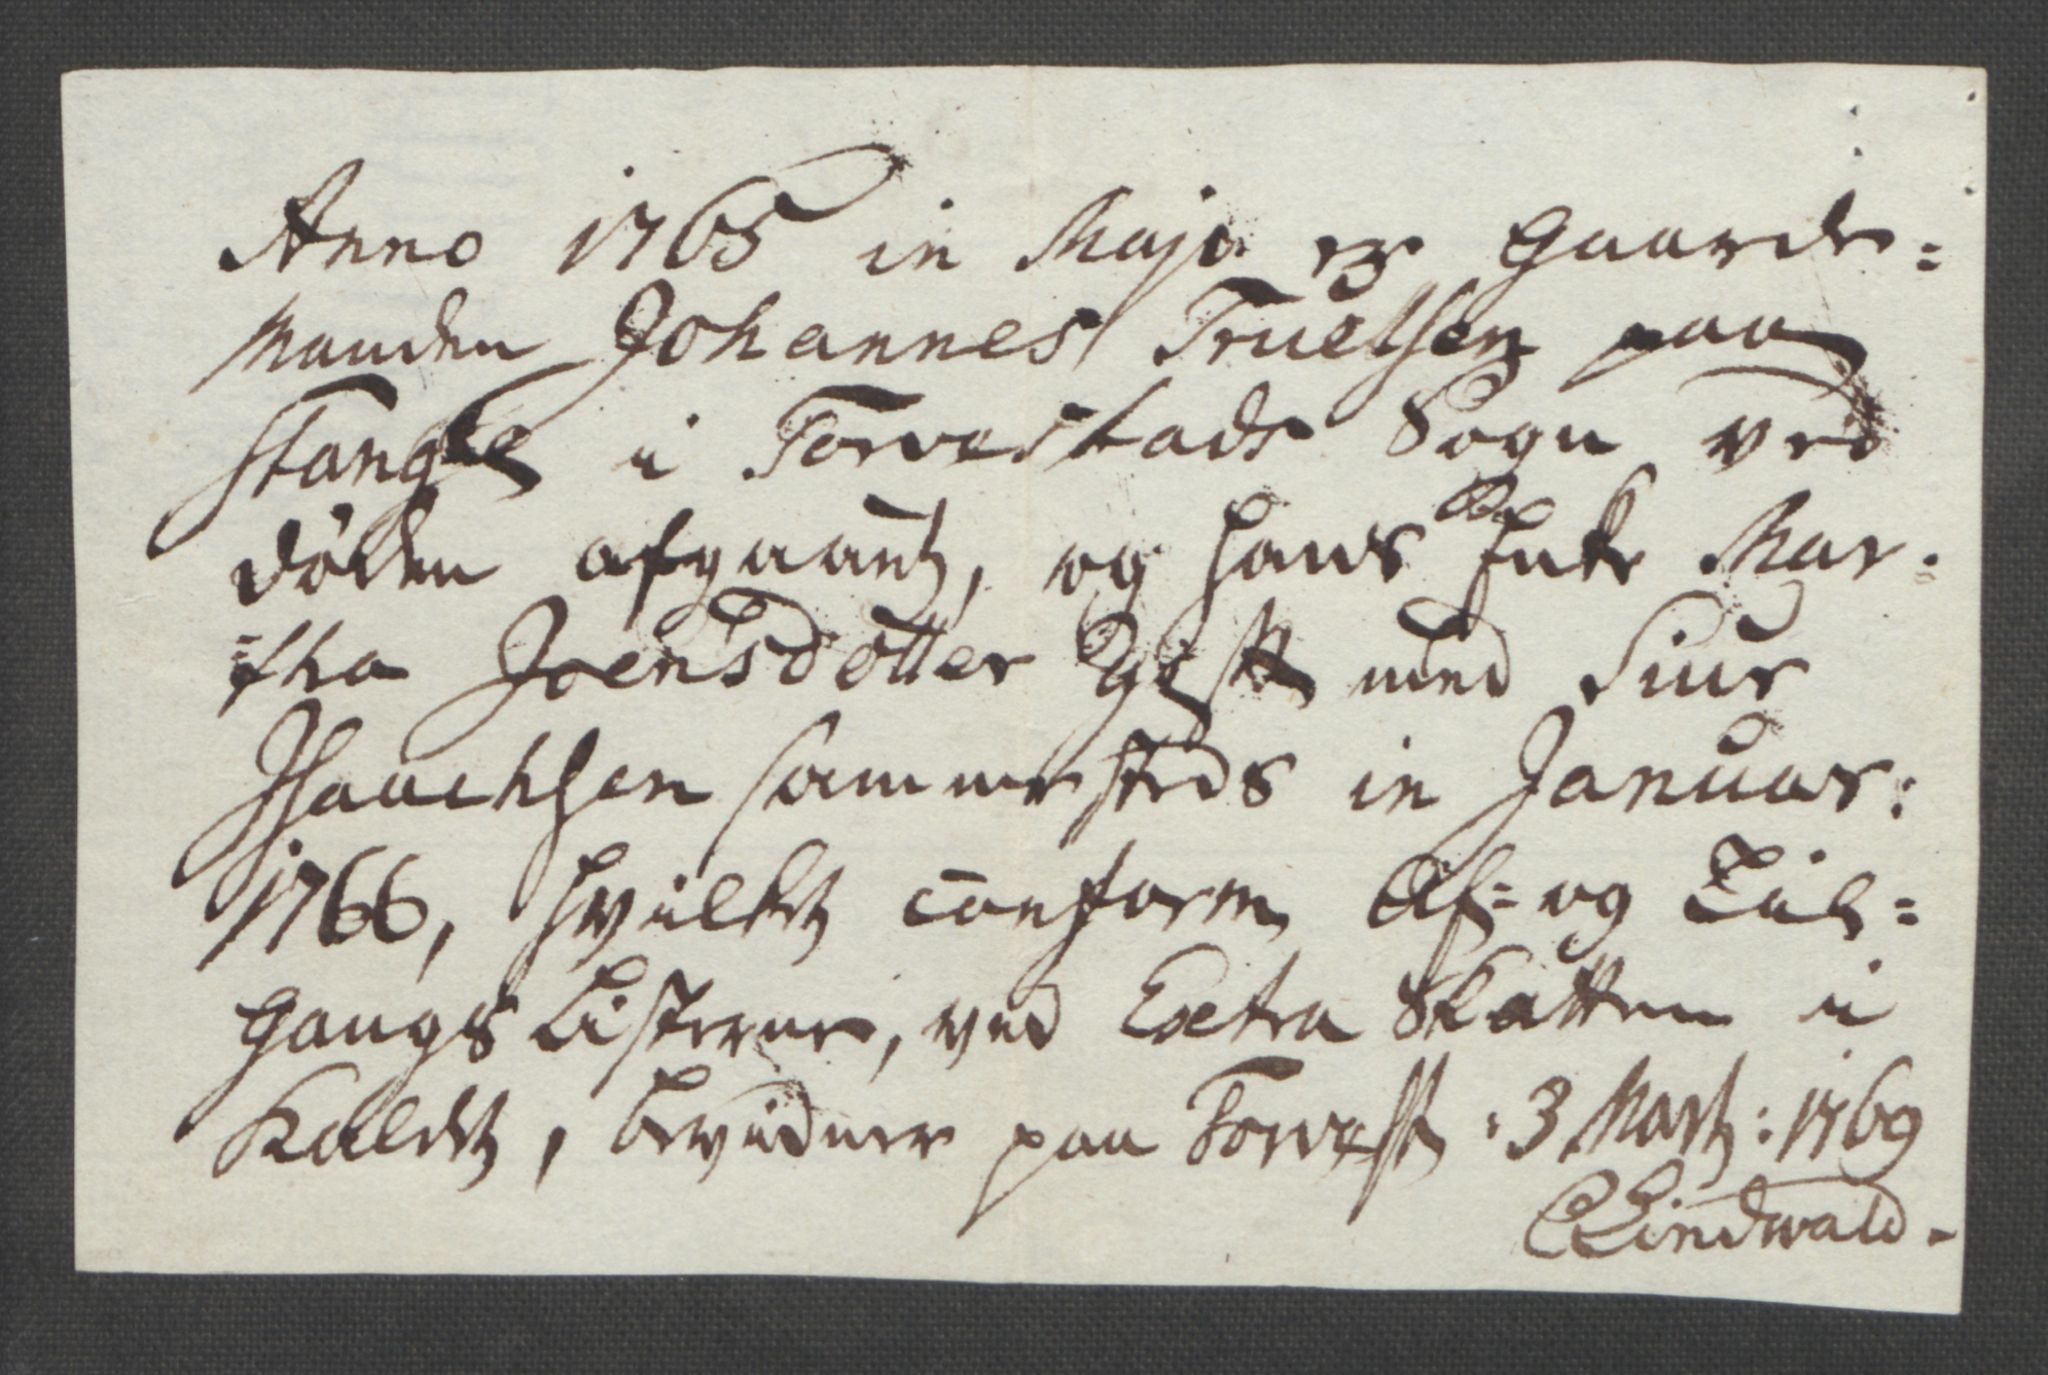 Anno 1765 in Majo er Gaarde=
Manden Johannes Truelsen paa
Stange i Torvestads Sogn ved
döden afgaaet, og hans Enke Mar-
=tha Joensdotter Egtet med Siur
Isaachsen sammesteds in Januar:
1766, hvilket conform Af= og Til=
Gangs Listerne, ved Extra Skatten i
Kaldet, bevidner paa Torvest: 3 Martz: 1769
CLindwald.